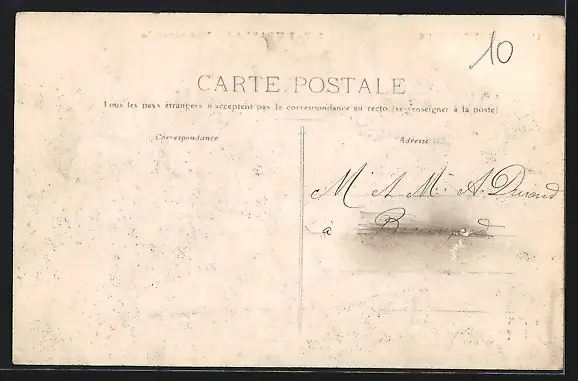 10
CARTE POSTALE
Tous les pays étrangers n'acceptent pas la correspondance au recto (se renseigner à la poste)
Correspondance
Adresse
M et Mme A. Durand
à